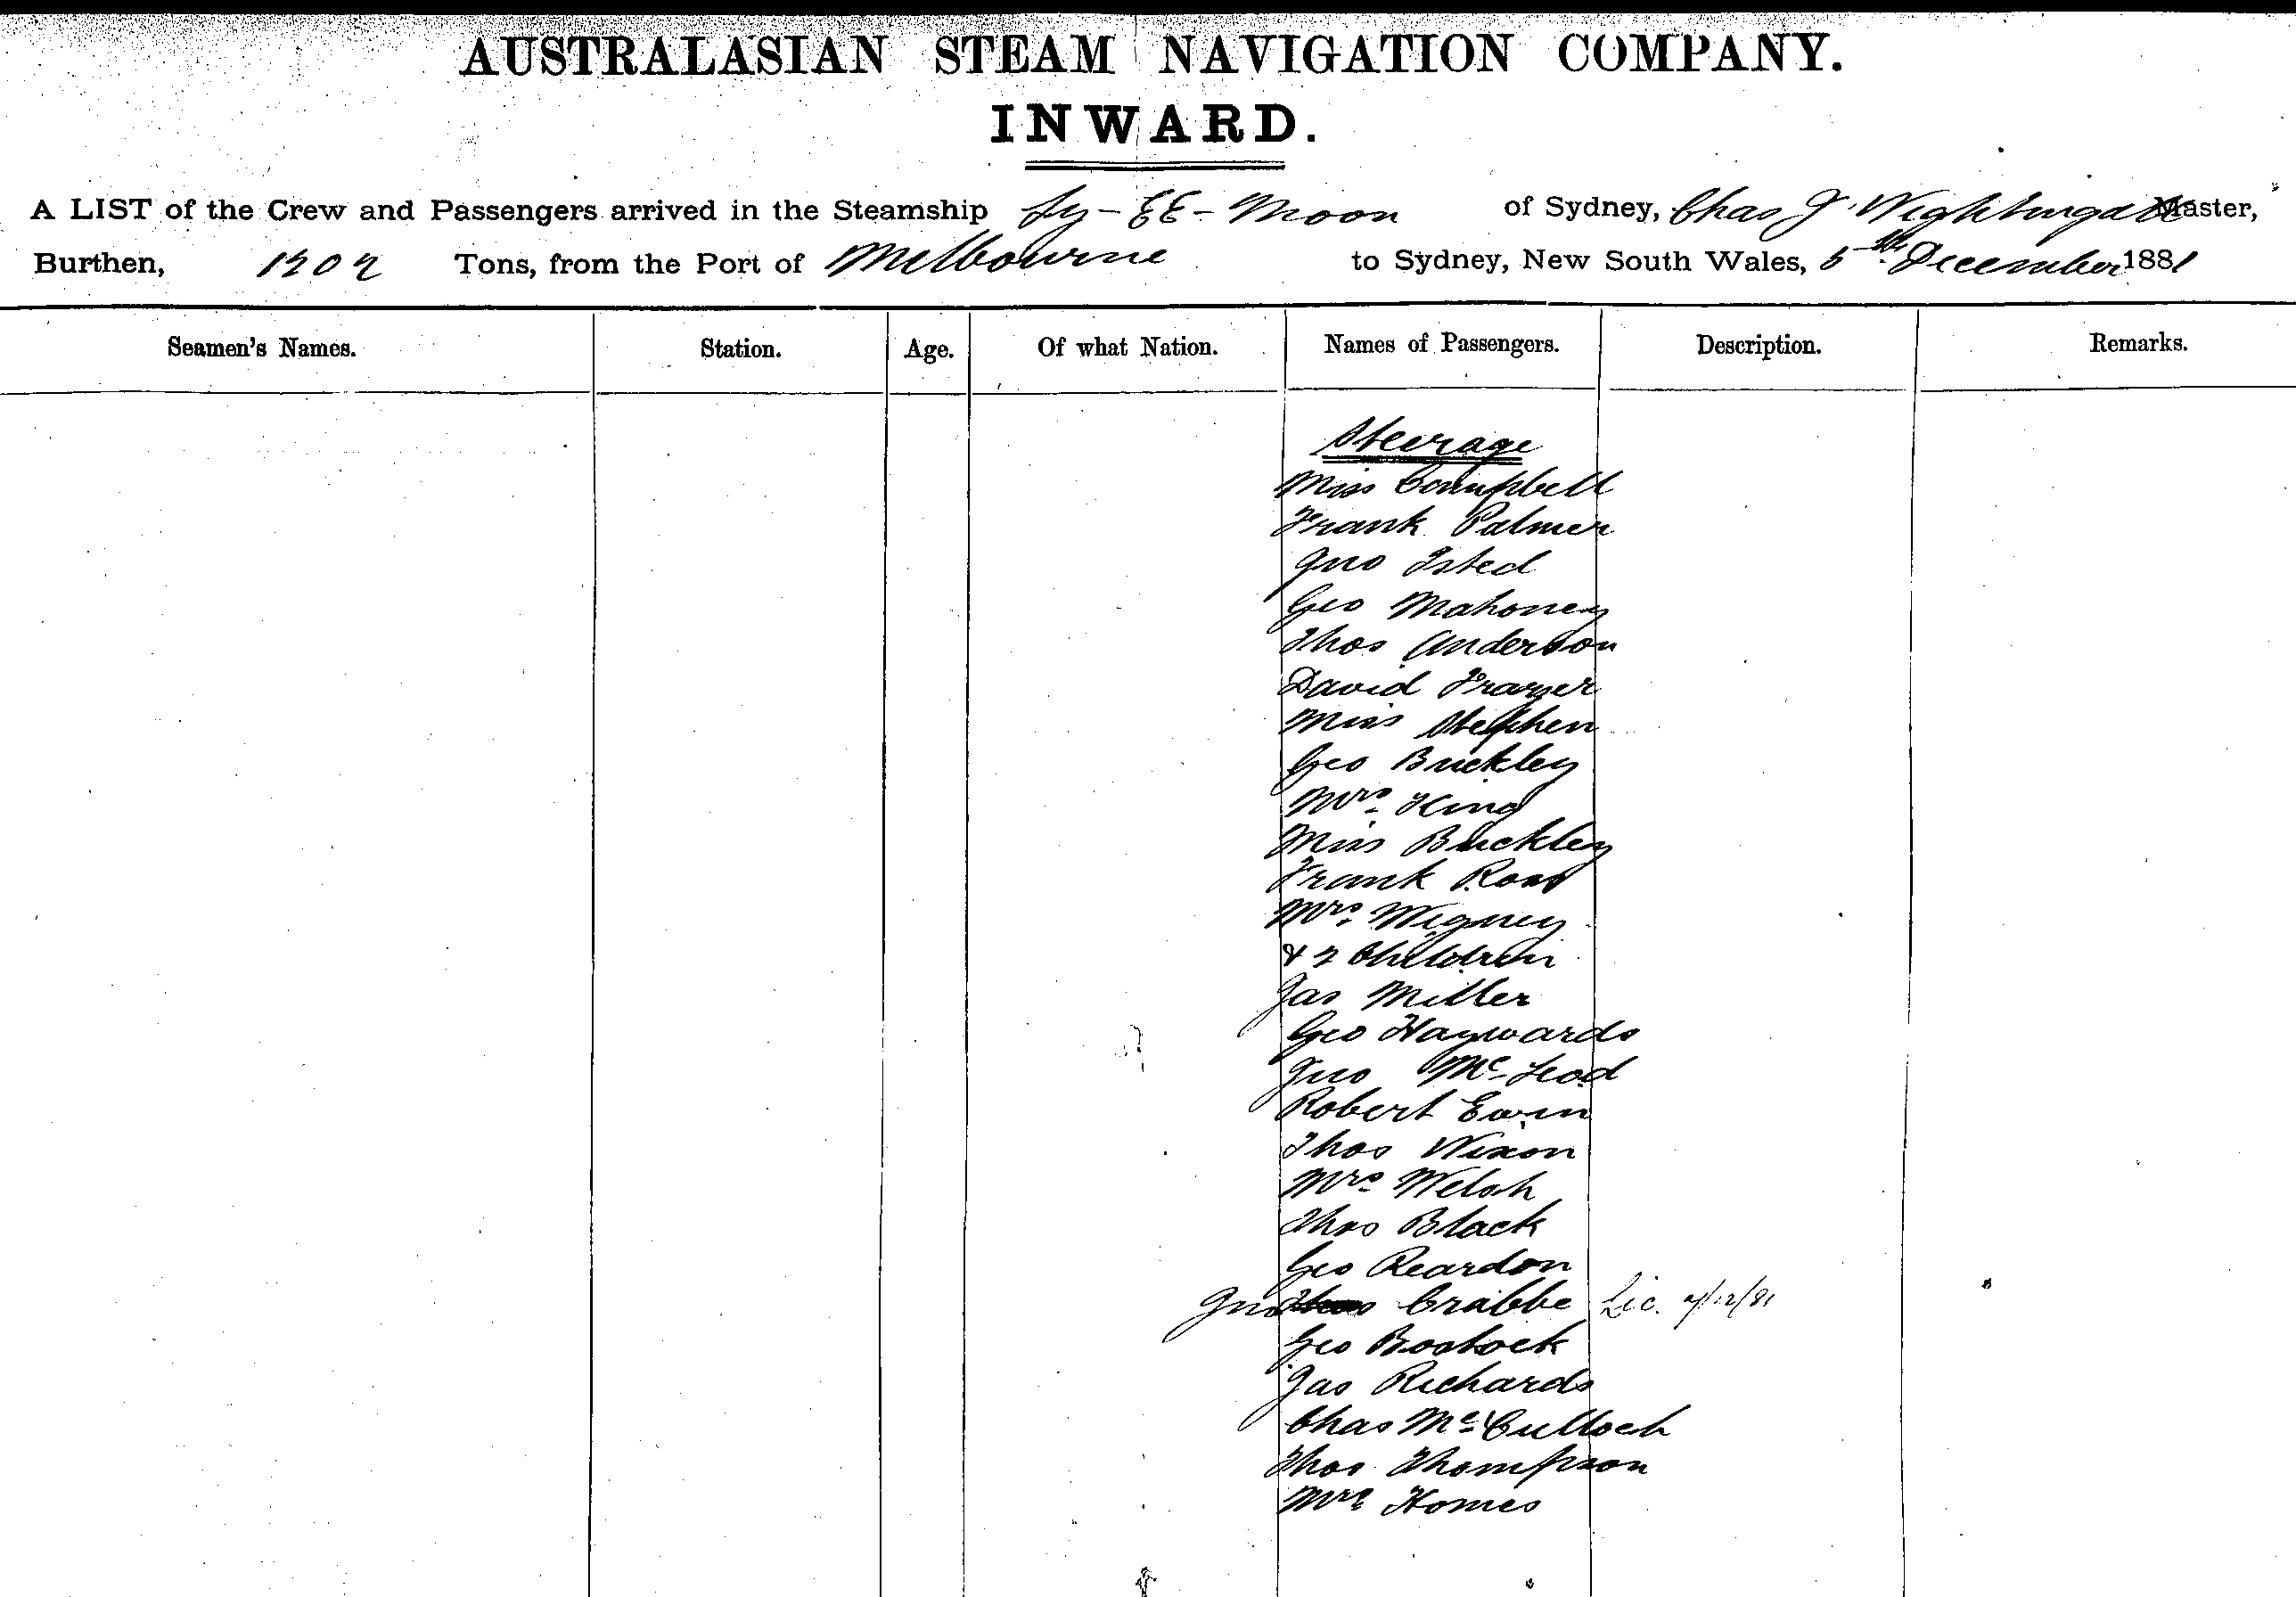 AUSTRALASIAN STEAM NAVIGATION COMPANY.
INWARD.
A LIST of the Crew and Passengers arrived in the Steamship Ly-EE-Moon of Sydney, Chas J. Nightingale Master,
Burthen, 1202 Tons, from the Port of Melbourne to Sydney, New South Wales, 5th December 1881
Seamen's Names. Station. Age. Of what Nation. Names of Passengers. Description. Remarks.
Steerage
Miss Campbell
Frank Palmer
Jno Isted
Geo Mahoney
Thos Anderson
David Frazer
Miss Stephen
Geo Buckley
Mrs King
Miss Buckley
Frank Ross
Mrs Wigney
& 2 Children
Jas Miller
Geo Haywards
Jno McLeod
Robert Ewin
Thos Nixon
Mrs Welsh
Thos Black
Geo Reardon
Jno Crabbe Lic. /12/81
Geo Bostock
Jas Richards
Chas McCulloch
Thos Thompson
Mrs Homes